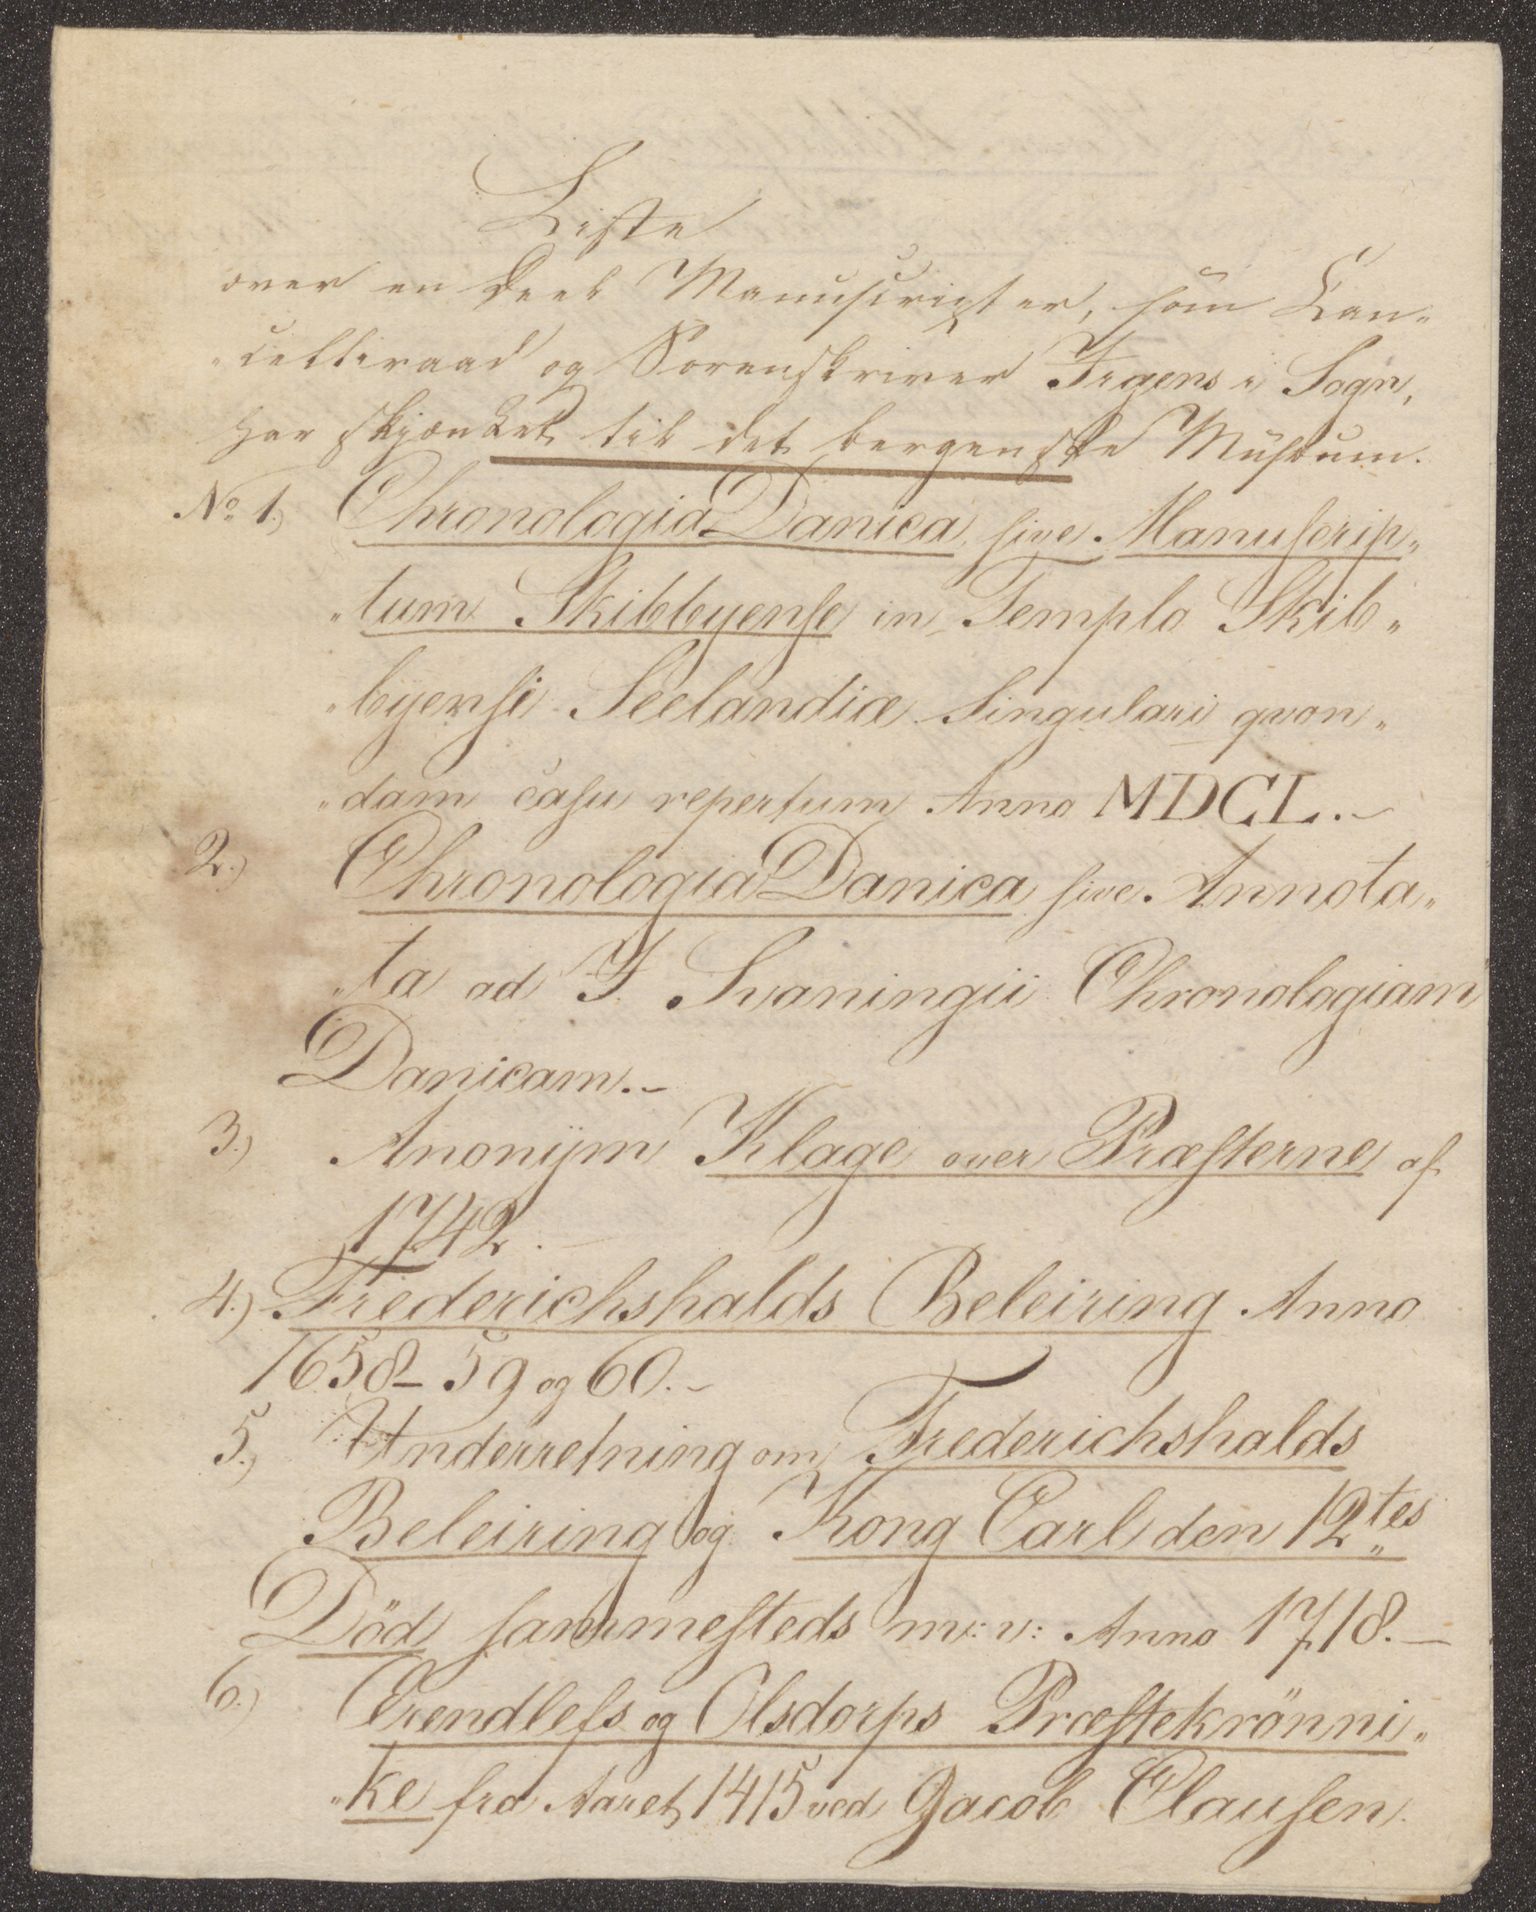 Liste
over en Deel Manuscripter, som Can„
„celliraad og Sorenskriver Irgens i Sogn,
har skjænket til det bergenske Museum.
No 1.) Chronologia Danica sive Manuscrip„
„tum Skibbyense in Templo Skib„
„byensi Seelandiæ singulari qvon„
„dam casu repertum Anno MDCL.–
2.) Chronologia Danica sive Annota„
„ta ad I. Svaningii Chronologiam
Danicam.–
3.) Anonÿm Klage over Præsterne af
1742.
4.) Frederichshalds Beleiring Anno
1658– 59 og 60.–
5.) Underretning om Frederichshalds
Beleiring og Kong Carl den 12tes
Död sammesteds m: v: Anno 1718.–
6.) og Olsdorps Præstekrönni„
„ke fra Aaret 1415 ved Jacob Clausen.